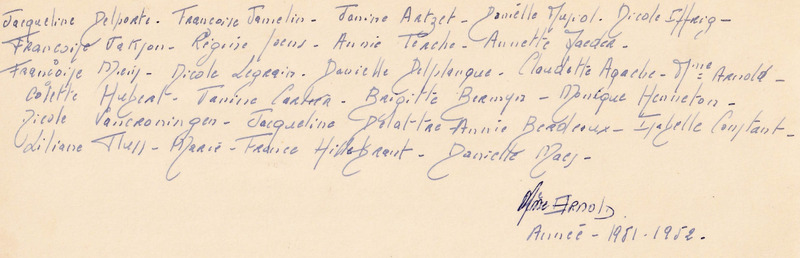 Jacqueline Delporte - Françoise Jamelin - Janine Artzet - Danielle Mujol - Nicole Iffrig -
Françoise Jakson - Régine Joens - Annie Perche - Annette Jaeder -
Françoise Mieny - Nicole Legrain - Danielle Delplanque - Claudette Agache - Mme Arnold -
Colette Hubert - Janine Carrera - Brigitte Bermyn - Monique Henneton -
Nicole Vancroningen - Jacqueline Delattre Annie Berdeaux - Isabelle Constant -
Liliane Fluss - Marie - France Hillebrant - Danielle Maes -
Mme ARNOLD
Année - 1951 - 1952 -